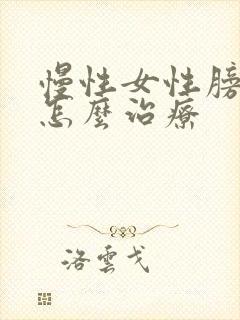 慢性女性膀
怎麼治療
洛雲戈